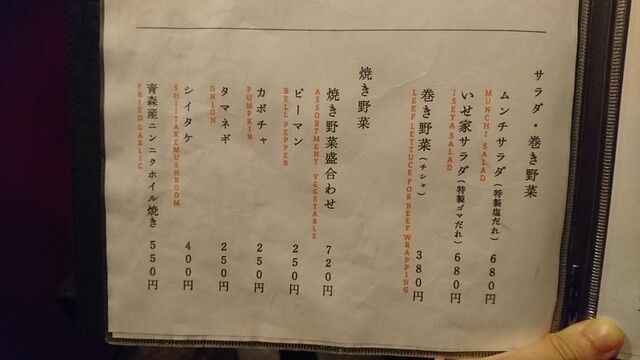 サラダ・巻き野菜
ムンチサラダ(特製塩だれ) 680円
MUNCHI SALAD
いせ家サラダ(特製ゴマだれ) 680円
ISEYA SALAD
巻き野菜(チシャ) 380円
LEEF LETTUCE FOR BEEF WRAPPING
焼き野菜
焼き野菜盛合わせ 720円
ASSORTMENT VEGETABLE
ピーマン 250円
BELL PEPPER
カボチャ 250円
PUMPKIN
タマネギ 250円
ONION
シイタケ 400円
SHIITAKE MUSHROOM
青森産ニンニクホイル焼き 550円
FRIED GARLIC